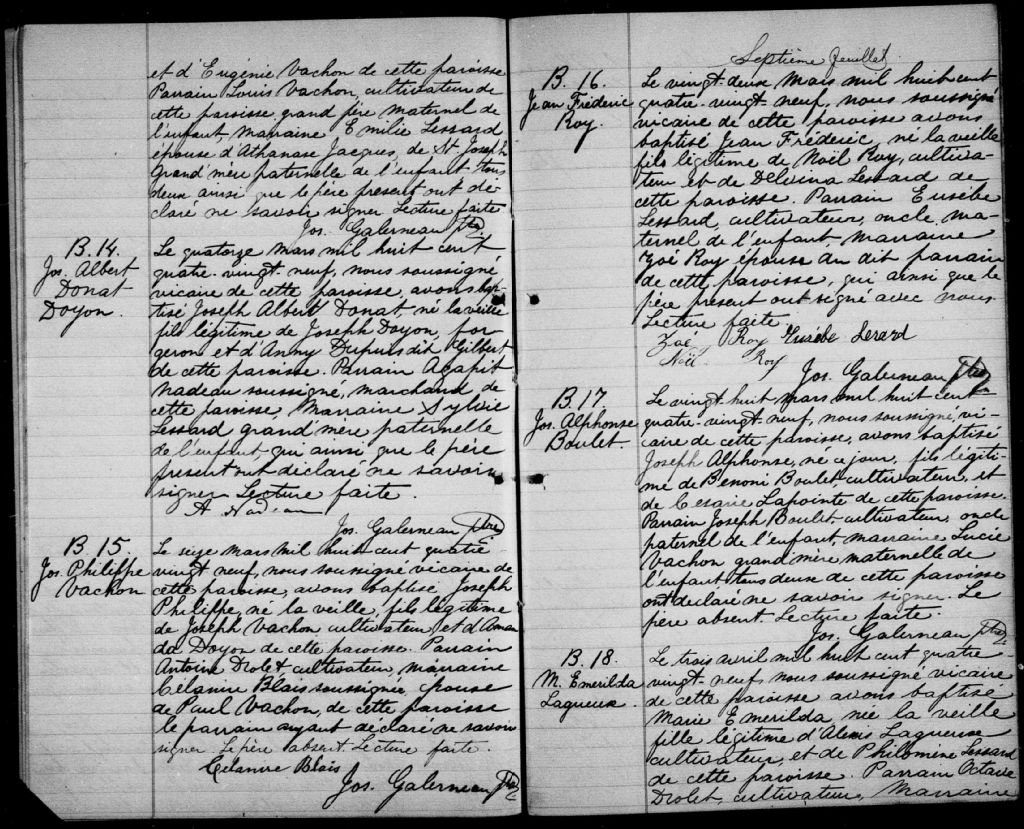 et d'Eugénie Vachon de cette paroisse
Parrain Louis Vachon, cultivateur de
cette paroisse, grand père maternel de
l'enfant, marraine Emilie Lessard
épouse d'Athanase Jacques, de St Joseph
Grand mère paternelle de l'enfant tous
deux ainsi que le père présent ont dé-
claré ne savoir signer Lecture faite
Jos. Galerneau Ptre
B. 14.
Jos. Albert
Donat
Doyon.
Le quatorze mars mil huit cent
quatre-vingt-neuf, nous soussigné
vicaire de cette paroisse, avons bap-
tisé Joseph Albert Donat, né la veille
fils légitime de Joseph Doyon, for-
geron et d'Anny Dupuis dit Gilbert
de cette paroisse. Parrain Agapit
Nadeau soussigné, marchand de
cette paroisse, Marraine Sylvie
Lessard grand'mère paternelle
de l'enfant qui ainsi que le père
présent ont déclaré ne savoir
signer Lecture faite.
A Nadeau
Jos. Galerneau Ptre
B. 15.
Jos. Philippe
Vachon
Le seize mars mil huit cent quatre-
vingt neuf, nous soussigné vicaire de
cette paroisse, avons baptisé Joseph
Philippe, né la veille, fils légitime
de Joseph Vachon cultivateur et d'Aman
da Doyon de cette paroisse. Parrain
Antoine Drolet cultivateur, marraine
Célanire Blais soussignée, épouse
de Paul Vachon, de cette paroisse
le parrain ayant déclaré ne savoir
signer. Le père absent. Lecture faite.
Célanire Blais
Jos. Galerneau Ptre
Septième feuillet
B. 16.
Jean Fréderic
Roy.
Le vingt-deux Mars mil huit cent
quatre-vingt neuf, nous soussigné
vicaire de cette paroisse avons
baptisé Jean Fréderic, né la veille
fils légitime de Noël Roy, cultiva-
teur et de Delvina Lessard de
cette paroisse. Parrain Eusèbe
Lessard, cultivateur, oncle ma-
ternel de l'enfant, marraine
Zoé Roy épouse du dit parrain
de cette paroisse, qui ainsi que le
père présent ont signé avec nous.
Lecture faite
Zoé Roy Eusèbe Lesard
Noël Roy
Jos. Galerneau Ptre
B. 17
Jos. Alphonse
Boulet
Le vingt huit mars mil huit cent
quatre-vingt-neuf, nous soussigné, vi-
caire de cette paroisse, avons baptisé
Joseph Alphonse, né ce jour, fils légiti-
me de Benoni Boulet cultivateur, et
de Césarie Lapointe de cette paroisse.
Parrain Joseph Boulet, cultivateur, oncle
paternel de l'enfant, marraine Lucie
Vachon grand mère maternelle de
l'enfant tous deux de cette paroisse
ont déclaré ne savoir signer. Le
père absent. Lecture faite.
Jos. Galerneau Ptre
B. 18.
M. Emerilda
Lagueux.
Le trois avril mil huit cent quatre-
vingt-neuf, nous soussigné vicaire
de cette paroisse avons baptisé
Marie Emerilda, née la veille
fille légitime d'Alexis Lagueux
cultivateur, et de Philomène Lessard
de cette paroisse. Parrain Octave
Drolet, cultivateur, Marraine